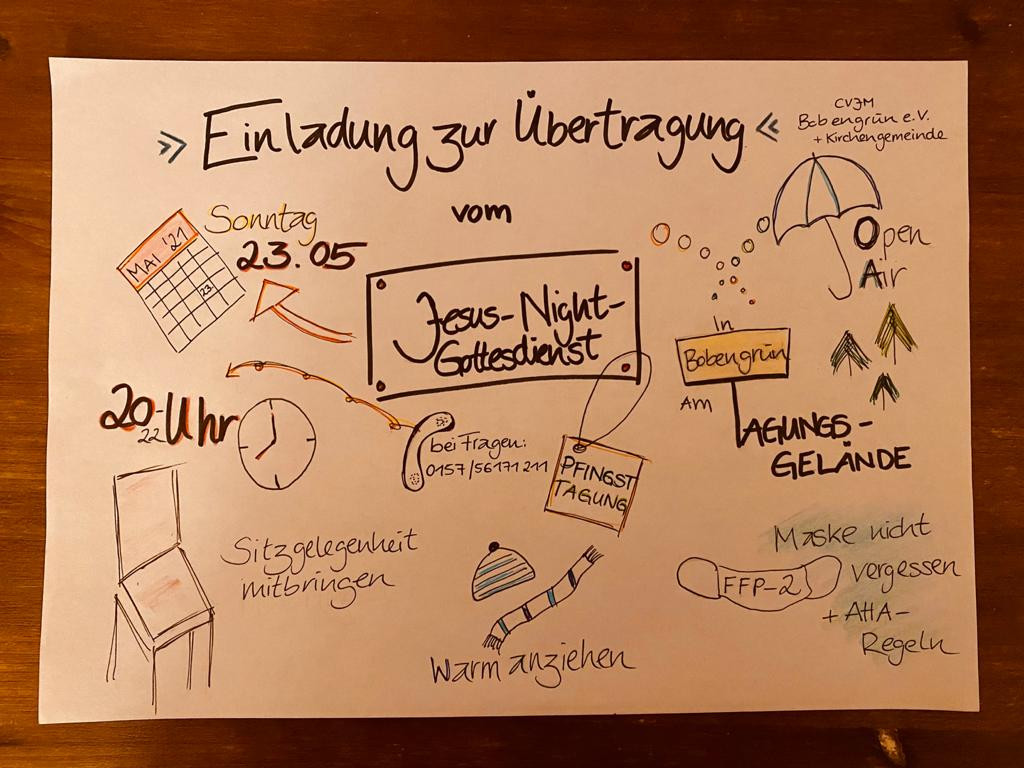 » Einladung zur Übertragung «
CVJM
Bobengrün e.V.
+ Kirchengemeinde
vom
Jesus-Night-
Gottesdienst
MAI '21
23
Sonntag
23.05
20 Uhr
22
bei Fragen:
0157/56171211
PFINGST
TAGUNG
Open
Air
In
Bobengrün
Am
TAGUNGS-
GELÄNDE
Sitzgelegenheit
mitbringen
Warm anziehen
FFP-2
Maske nicht
vergessen
+ AHA-
Regeln